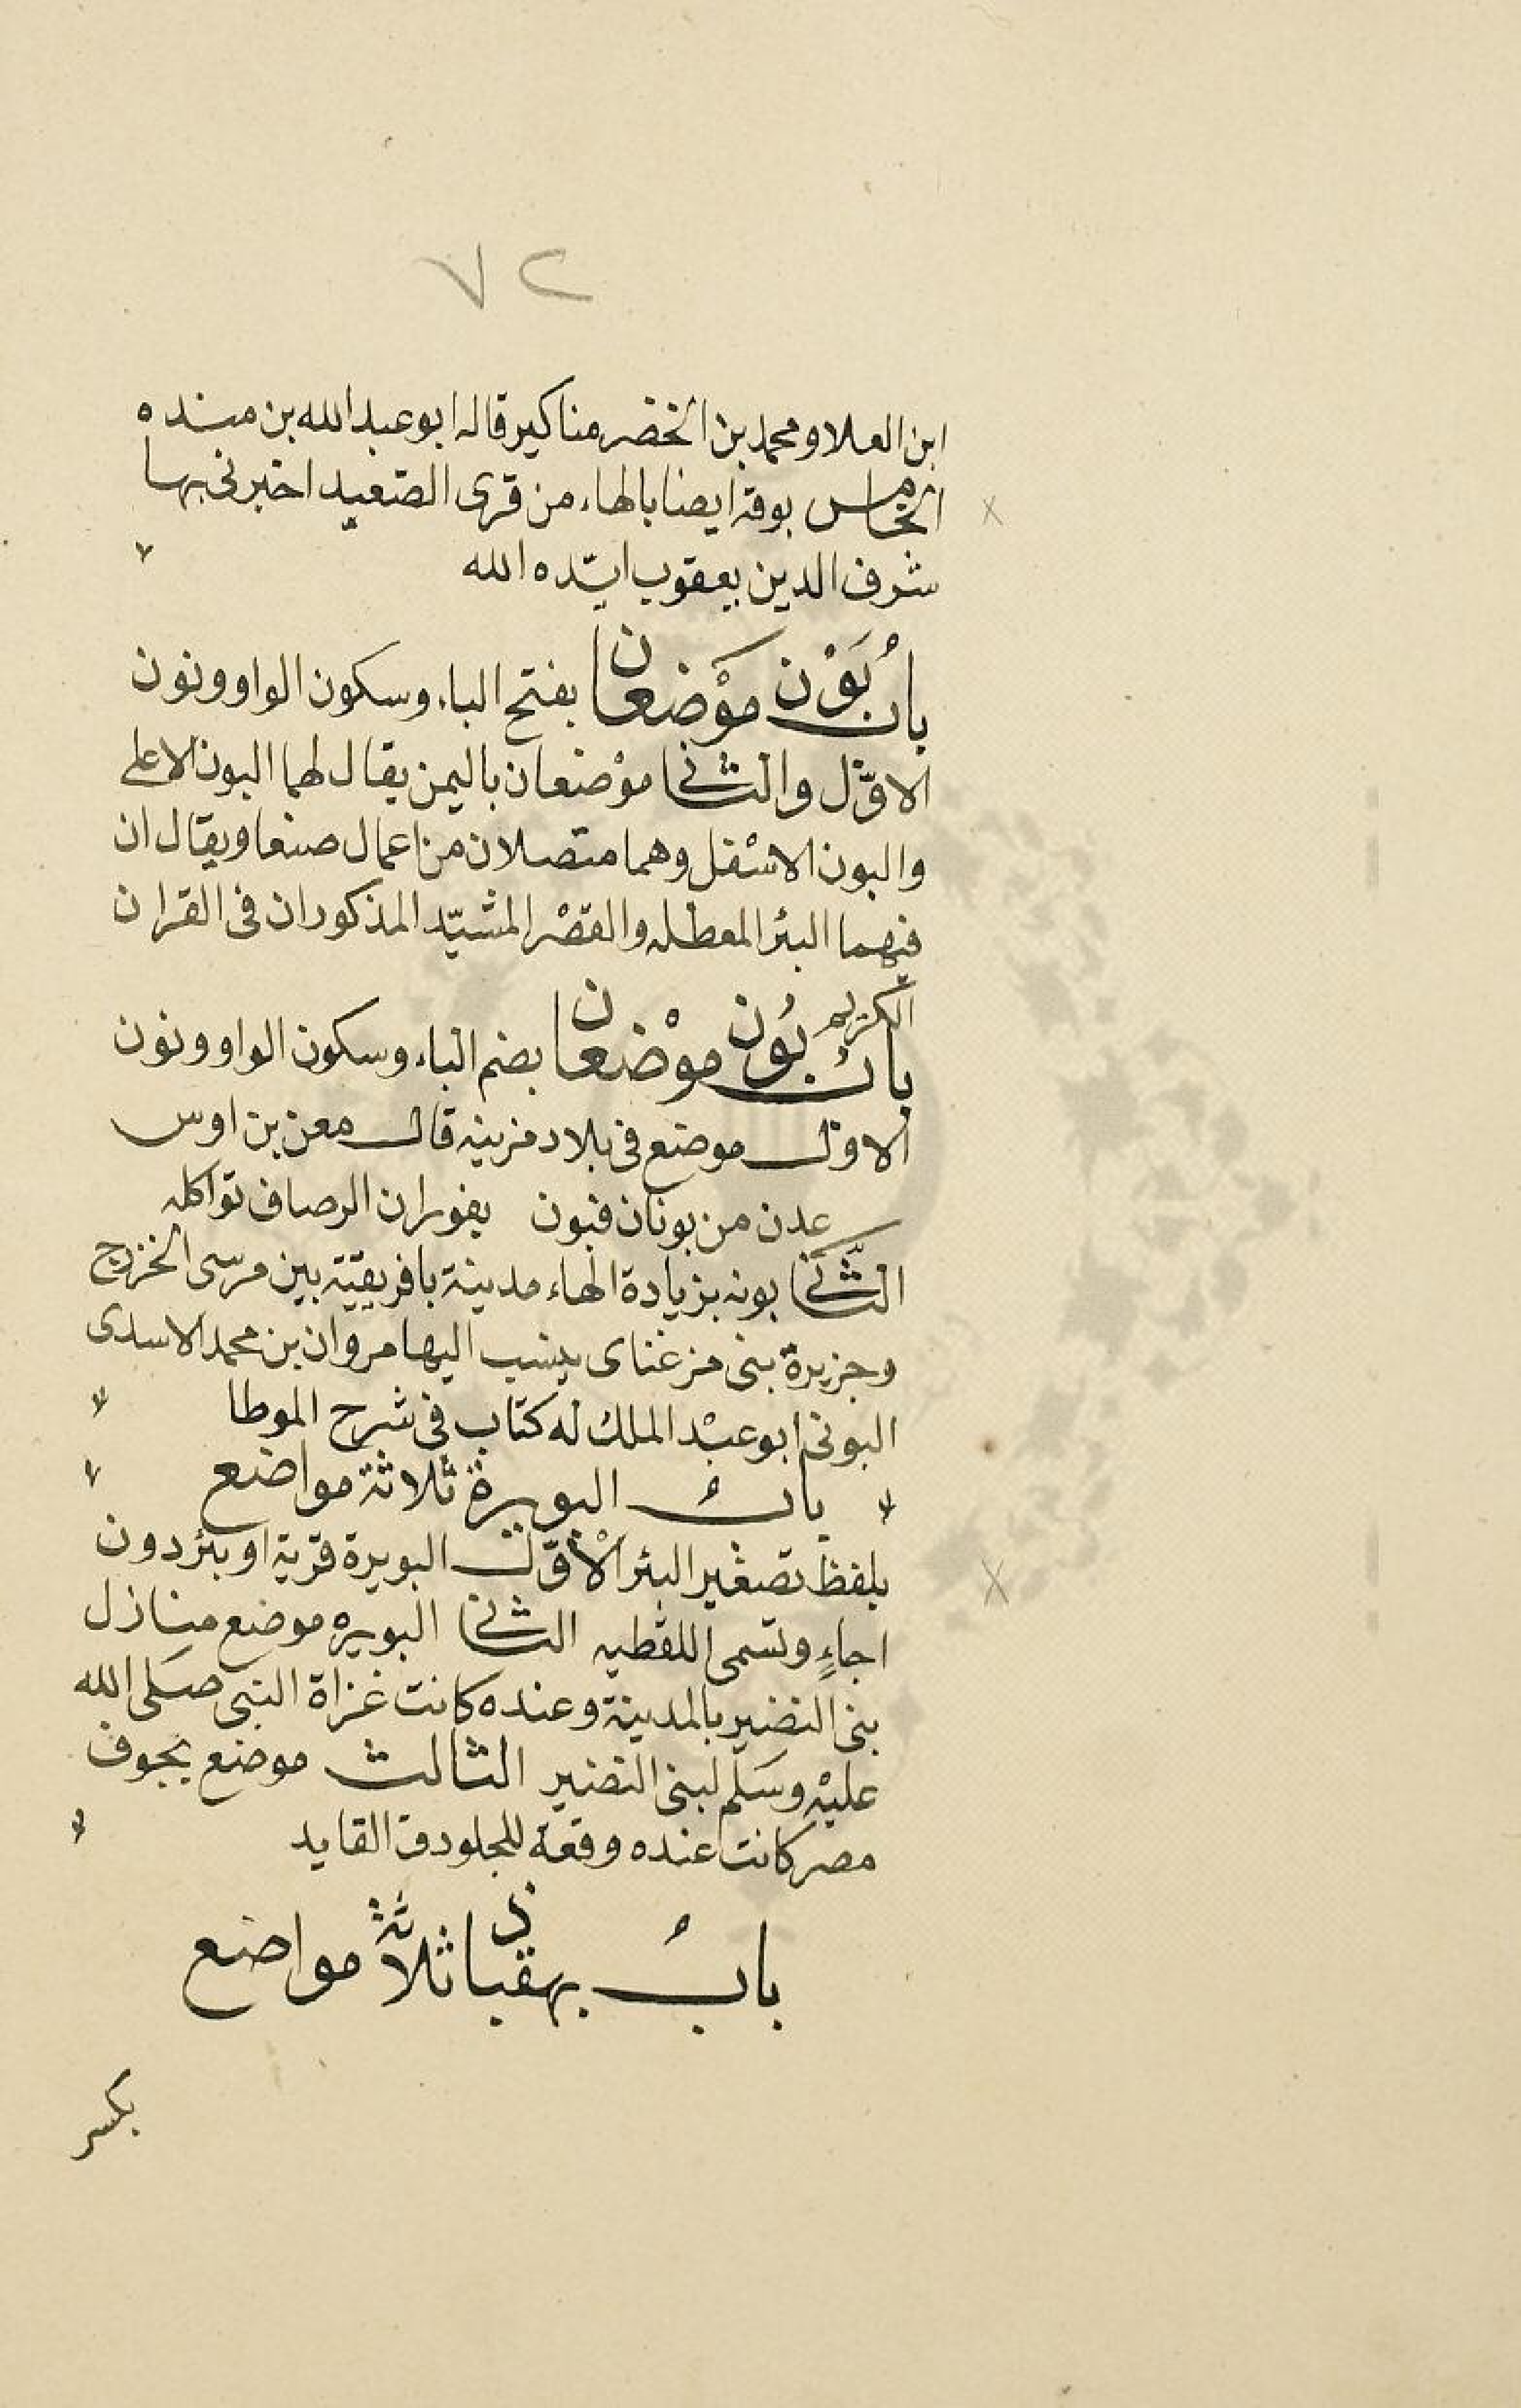 ٧٢
ابن العلا ومحمد بن الخضر مناكير قاله ابو عبد الله بن منده
الخامس بوقه ايضا بالهاء من قرى الصعيد اخبرنى بها
شرف الدين يعقوب ايّده الله
بابُ بَوْن موْضعان بفتح الباء وسكون الواو ونون
الاوّل والثانى موْضعان باليمن يقال لهما البون الاعلى
والبون الاسْفل وهما متصلان من اعمال صنعا ويقال ان
فيهما البئر المعطله والقصْر المشيّد المذكوران فى القران
الكريم
بابُ بُون موْضعان بضم الباء وسكون الواو ونون
الاول موضع فى بلاد مزينه قال معن بن اوس
بونان فبون الرصاف تواكله
الثّانى بونه بزيادة الهاء مدينة بافريقيّة بين مرسى الخزرج
وجزيرة بنى مزغناى ينسب اليها مروان بن محمد الاسدى
البونى ابو عبْد الملك له كتاب فى شرح الموطا
بابُ البويرة ثلاثة مواضع
بلفظ تصغير البئر الْاوّل البويرة قرية او بئر دون
اجاءٍ وتسمى اللقطيه الثانى البويره موضع منازل
بنى النضير بالمدينة وعنده كانت غزاة النبى صَلى الله
عليْه وسَلّم لبنى النضير الثالث موضع بجوف
مصر كانت عنده وقعة للجلودى القايد
بابُ بهقباذ ثلاثة مواضع
بكسر